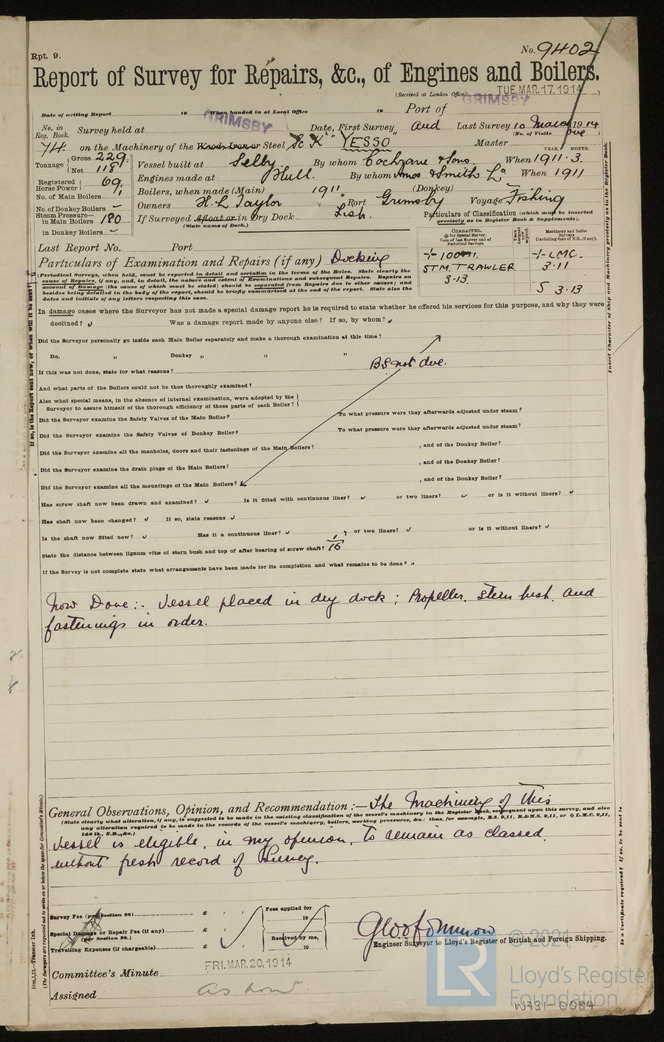 Rpt. 9.
No. 9402
Report of Survey for Repairs, &c., of Engines and Boilers.
(Received at London Office TUE. MAR. 17. 1914
Date of writing Report 19 When handed in at Local Office 19 Port of GRIMSBY
No. in Reg. Book. Survey held at GRIMSBY Date, First Survey and Last Survey 10 March 1914
(No. of Visits one)
74 on the Machinery of the Wood, Iron or Steel Sc K "YESSO" Master
Tonnage Gross 229 Net 118 Vessel built at Selby By whom Cochrane & Sons. When 1911. 3.
YEAR. MONTH.
Registered Horse Power 69 Engines made at Hull. By whom Amos & Smith Ld When 1911
No. of Main Boilers 1 Boilers, when made (Main) 1911 (Donkey)
No. of Donkey Boilers - Owners H. L. Taylor Port Grimsby Voyage Fishing
Steam Pressure— in Main Boilers 180 in Donkey " - If Surveyed Afloat or in Dry Dock Fish.
(State name of Dock.)
Particulars of Classification (which must be inserted precisely as in Register Book & Supplements).
CHARACTER. Machinery and Boiler Surveys
100A1. LMC.
STM TRAWLER 3.11
3.13 S 3.13
Last Report No. Port
Particulars of Examination and Repairs (if any) Docking
(Periodical Surveys, when held, must be reported in detail and seriatim in the terms of the Rules. State clearly the
cause of Repairs, if any, and, in detail, the nature and extent of Examinations and subsequent Repairs. Repairs on
account of damage (the cause of which must be stated) should be separated from Repairs due to other causes; and
besides being detailed in the body of the report, should be briefly summarised at the end of the report. State also the
dates and initials of any letters respecting this case.
In damage cases where the Surveyor has not made a special damage report he is required to state whether he offered his services for this purpose, and why they were
declined? Was a damage report made by anyone else? If so, by whom?
Did the Surveyor personally go inside each Main Boiler separately and make a thorough examination at this time?
Do. " Donkey " " "
BS not due.
If this was not done, state for what reasons?
And what parts of the Boilers could not be thus thoroughly examined?
Also what special means, in the absence of internal examination, were adopted by the
Surveyor to assure himself of the thorough efficiency of those parts of each Boiler?
Did the Surveyor examine the Safety Valves of the Main Boiler? To what pressure were they afterwards adjusted under steam?
Did the Surveyor examine the Safety Valves of Donkey Boiler? To what pressure were they afterwards adjusted under steam?
Did the Surveyor examine all the manholes, doors and their fastenings of the Main Boilers? , and of the Donkey Boiler?
Did the Surveyor examine the drain plugs of the Main Boilers? , and of the Donkey Boiler?
Did the Surveyor examine all the mountings of the Main Boilers? , and of the Donkey Boiler?
Has screw shaft now been drawn and examined? Is it fitted with continuous liner? or two liners? or is it without liners?
Has shaft now been changed? If so, state reasons
Is the shaft now fitted new? Has it a continuous liner? or two liners? or is it without liners?
State the distance between lignum vitæ of stern bush and top of after bearing of screw shaft? 1/16
If the Survey is not complete state what arrangements have been made for its completion and what remains to be done?
Now Done:- Vessel placed in dry dock; Propeller, stern bush, and
fastenings in order.
General Observations, Opinion, and Recommendation:— The Machinery of this
(State clearly what alteration, if any, is suggested to be made in the existing classification of the vessel's machinery in the Register Book, consequent upon this survey, and also
any alteration required to be made in the records of the vessel's machinery, boilers, working pressures, &c.; thus, for example, B.S. 9,11, B.&M.S. 9,11, or L.M.C. 9,11,
vessel is eligible, in my opinion, to remain as classed
without fresh record of Survey.
Survey Fee (per Section 28) £ : : Fees applied for
Special Damage or Repair Fee (if any) £ : : 19
(per Section 28.) Received by me,
Travelling Expenses (if chargeable) £ : : 19
Engineer Surveyor to Lloyd's Register of British and Foreign Shipping.
Committee's Minute FRI. MAR. 20. 1914
Assigned as now
© 2021
LR
Lloyd's Register
Foundation
W731-0084